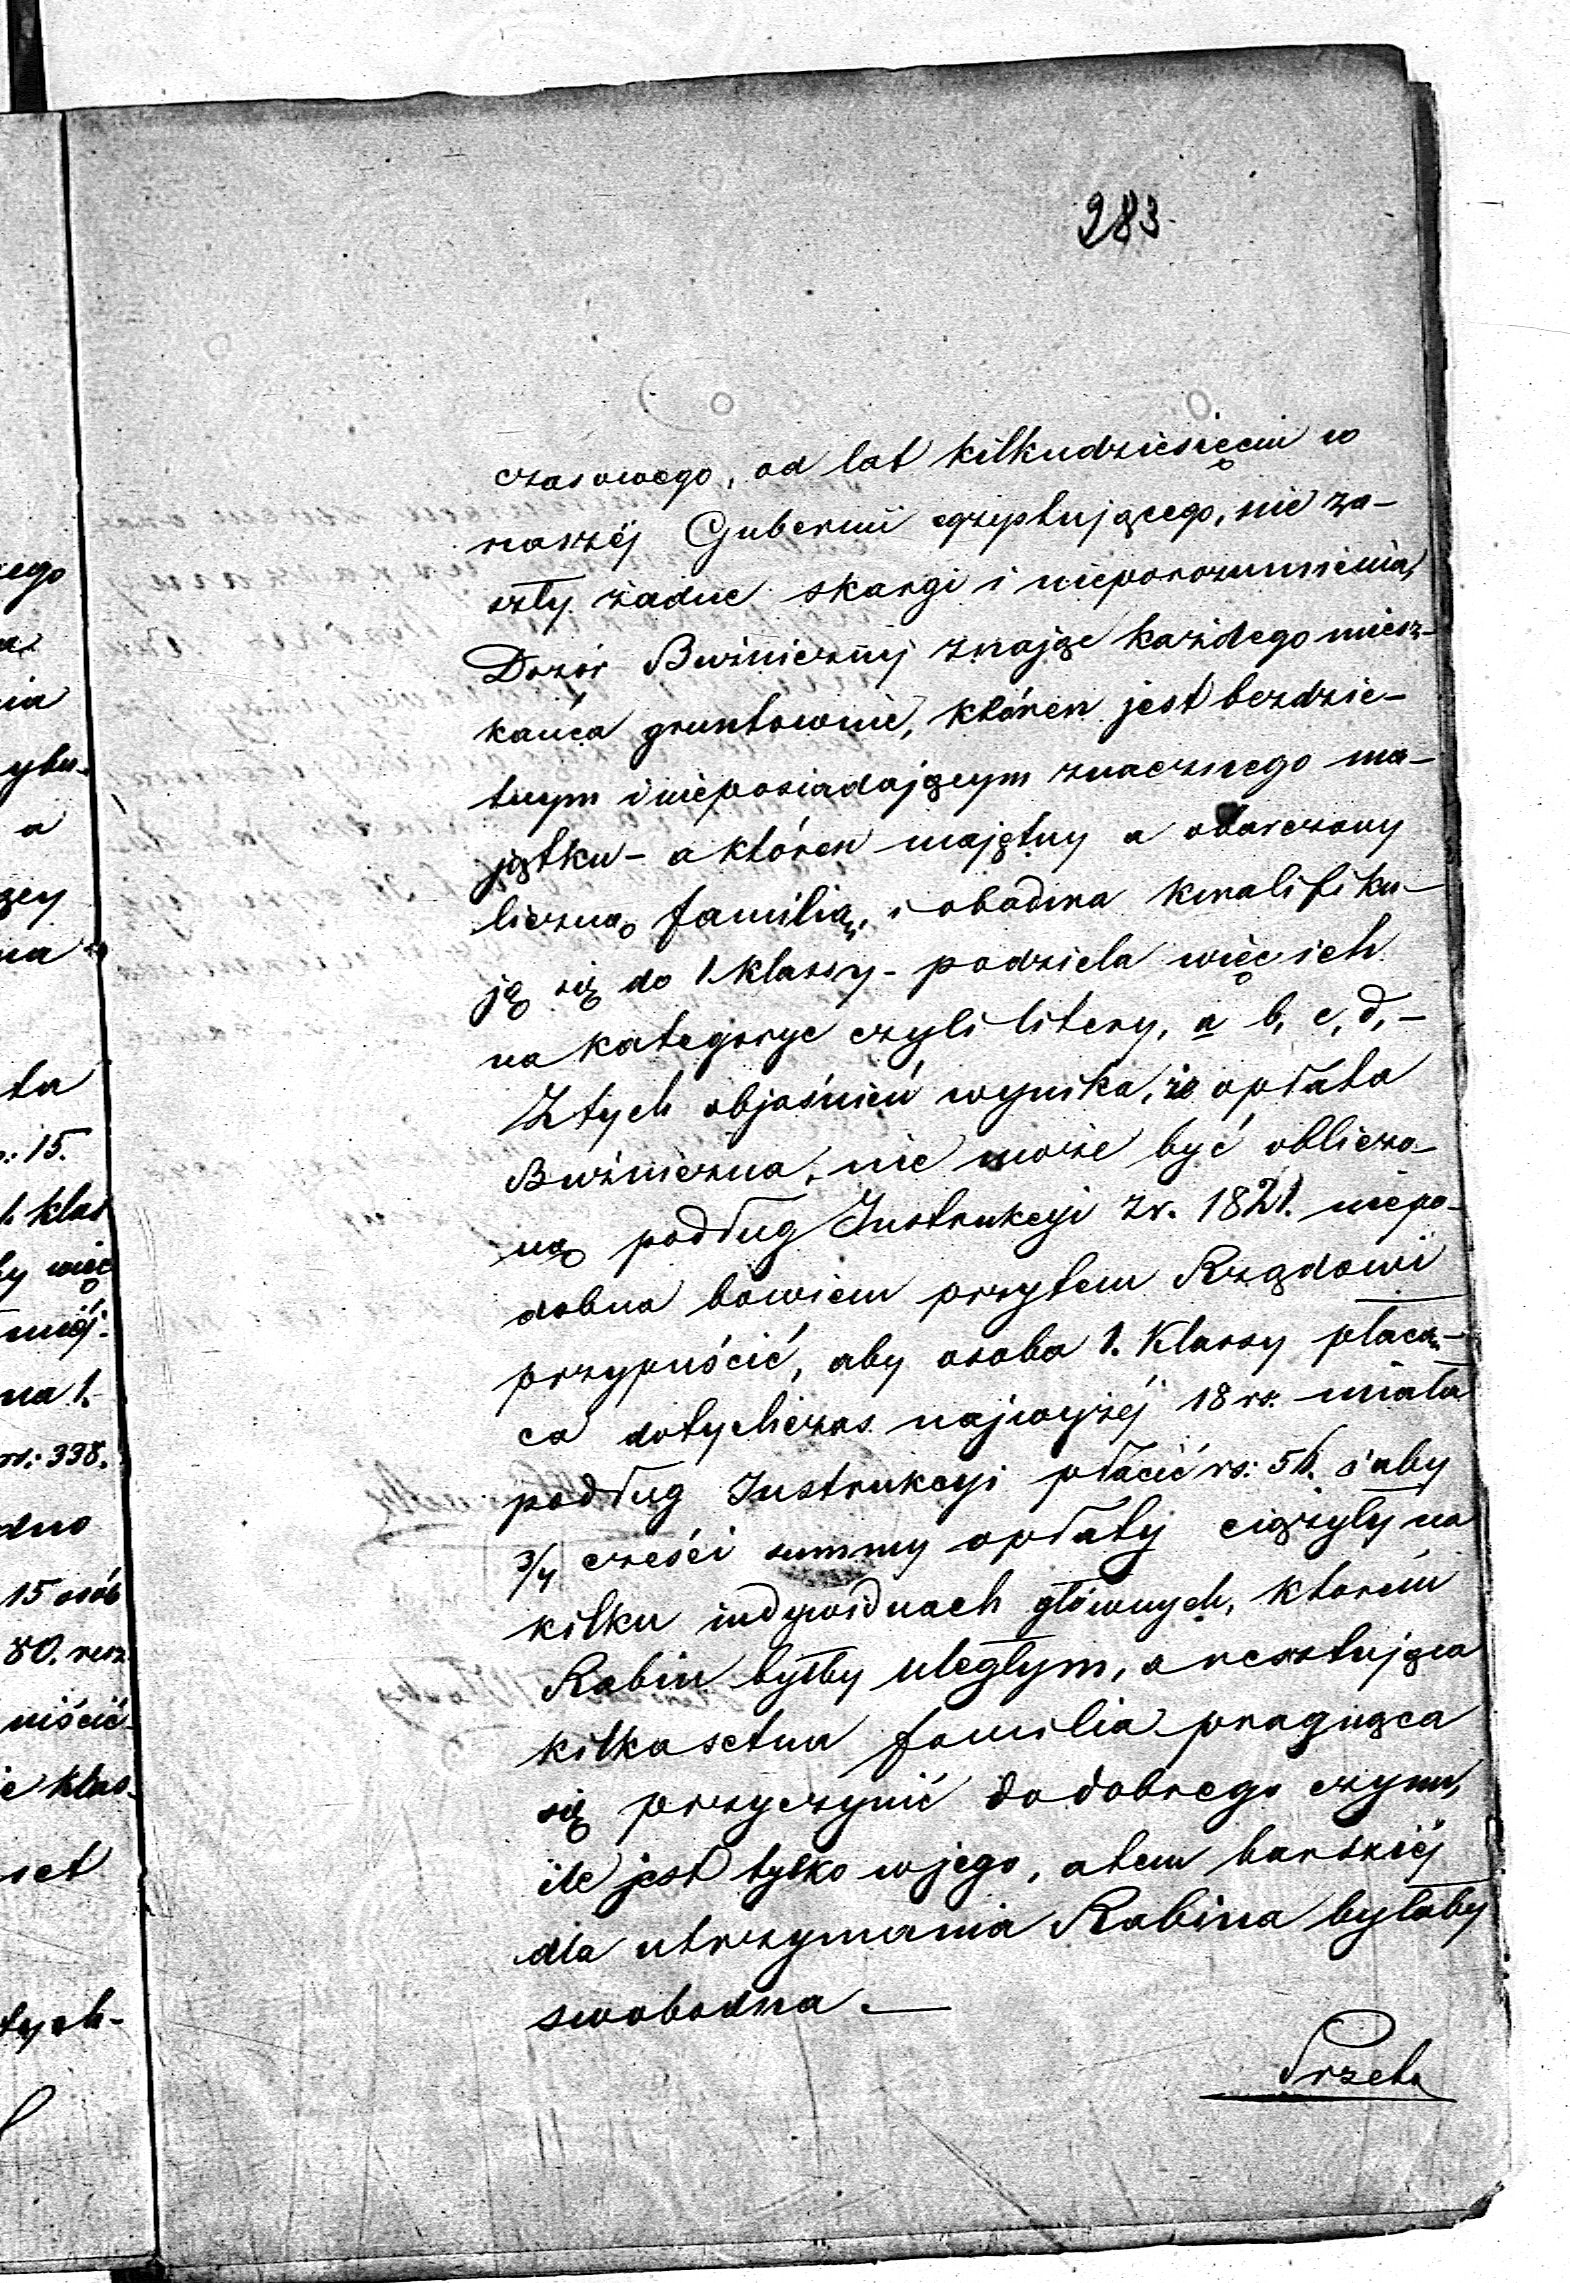 283.
czasowego, od lat kilkudziesięciu w
naszéj Gubernii egzystującego, nie za-
szły żadne skargi i nieporozumienia,
Dozór Bużniczny znając każdego miesz-
kańca gruntownie, któren jest bezdzie-
tnym i nieposiadającym znacznego ma-
jątku - a któren majętny a obarczony
liczną familią, i obadwa kwalifiku-
ją się do 1. klassy - podziela więc ich
na kategorye czyli litery, a b, c, d, -
Z tych objaśnień wynika, że opłata
Bużniczna, nie może być oblicza-
ną podług Instrukcyi z r. 1821. niepo-
dobna bowiem przytem Rządowi
przypuścić, aby osoba 1. Klassy płacą-
ca dotychczas najwyżéj 18 rs. miała
podług Instrukcyi płacić rs: 56. i aby
3/4 cześci summy opłaty ciążyły na
kilku indywiduach głównych, którem
Rabin byłby uległym, a resztująca
kilkasetna familia pragnąca
się przyczynić do dobrego czynu,
ile jest tylko w jego, a tem bardziéj
dla utrzymania Rabina byłaby
swobodna. —
Przeto
zego
ia
ybu-
a
zey
na
ta
15.
1. klas
by więc
mniéj.
na 1.
rs: 338.
dno
15 osób
80. rs
niścić
ie klas-
set
tych-